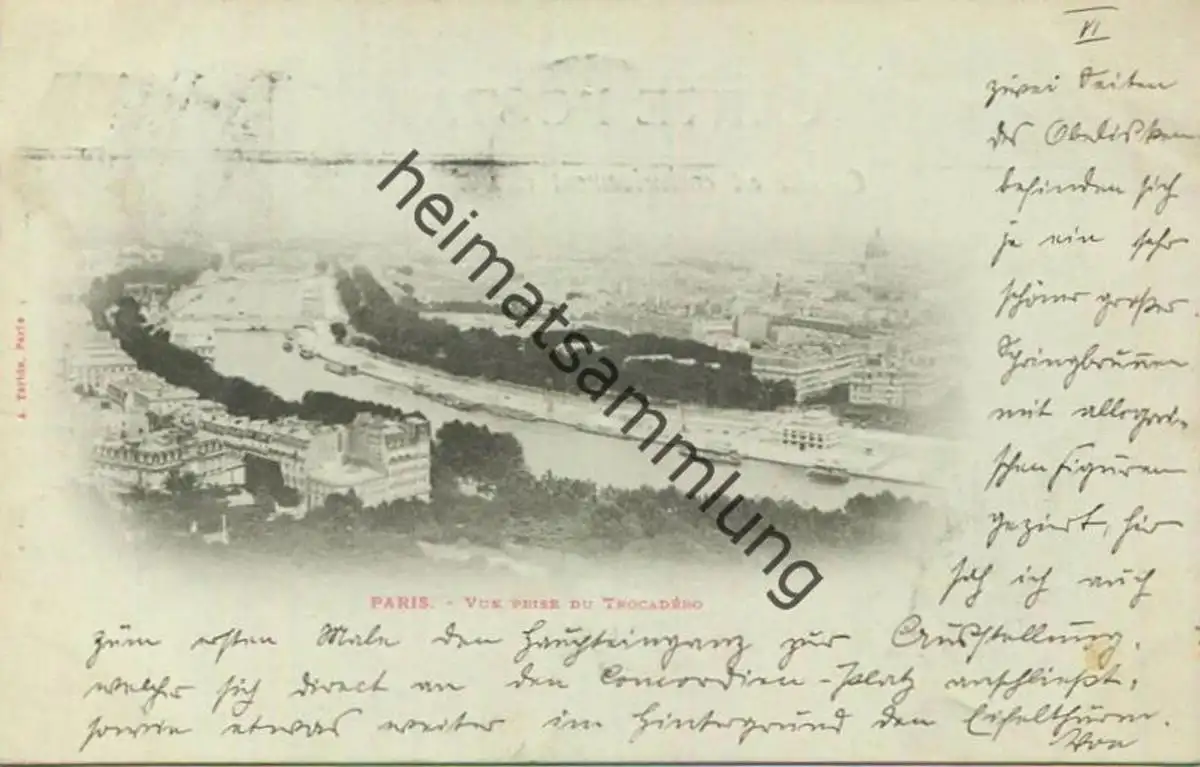 VI
zwei Seiten
des Obelisken
befinden sich
je ein sehr
schöner großer
Springbrunnen
mit allegori-
schen Figuren
geziert, hier
sah ich auch
zum ersten Male den Haupteingang zur Ausstellung,
welcher sich direct an den Concordien-Platz anschließt,
sowie etwas weiter im Hintergrund den Eifelthurm.
Von
PARIS. - VUE PRISE DU TROCADÉRO
Paris
heimatsammlung